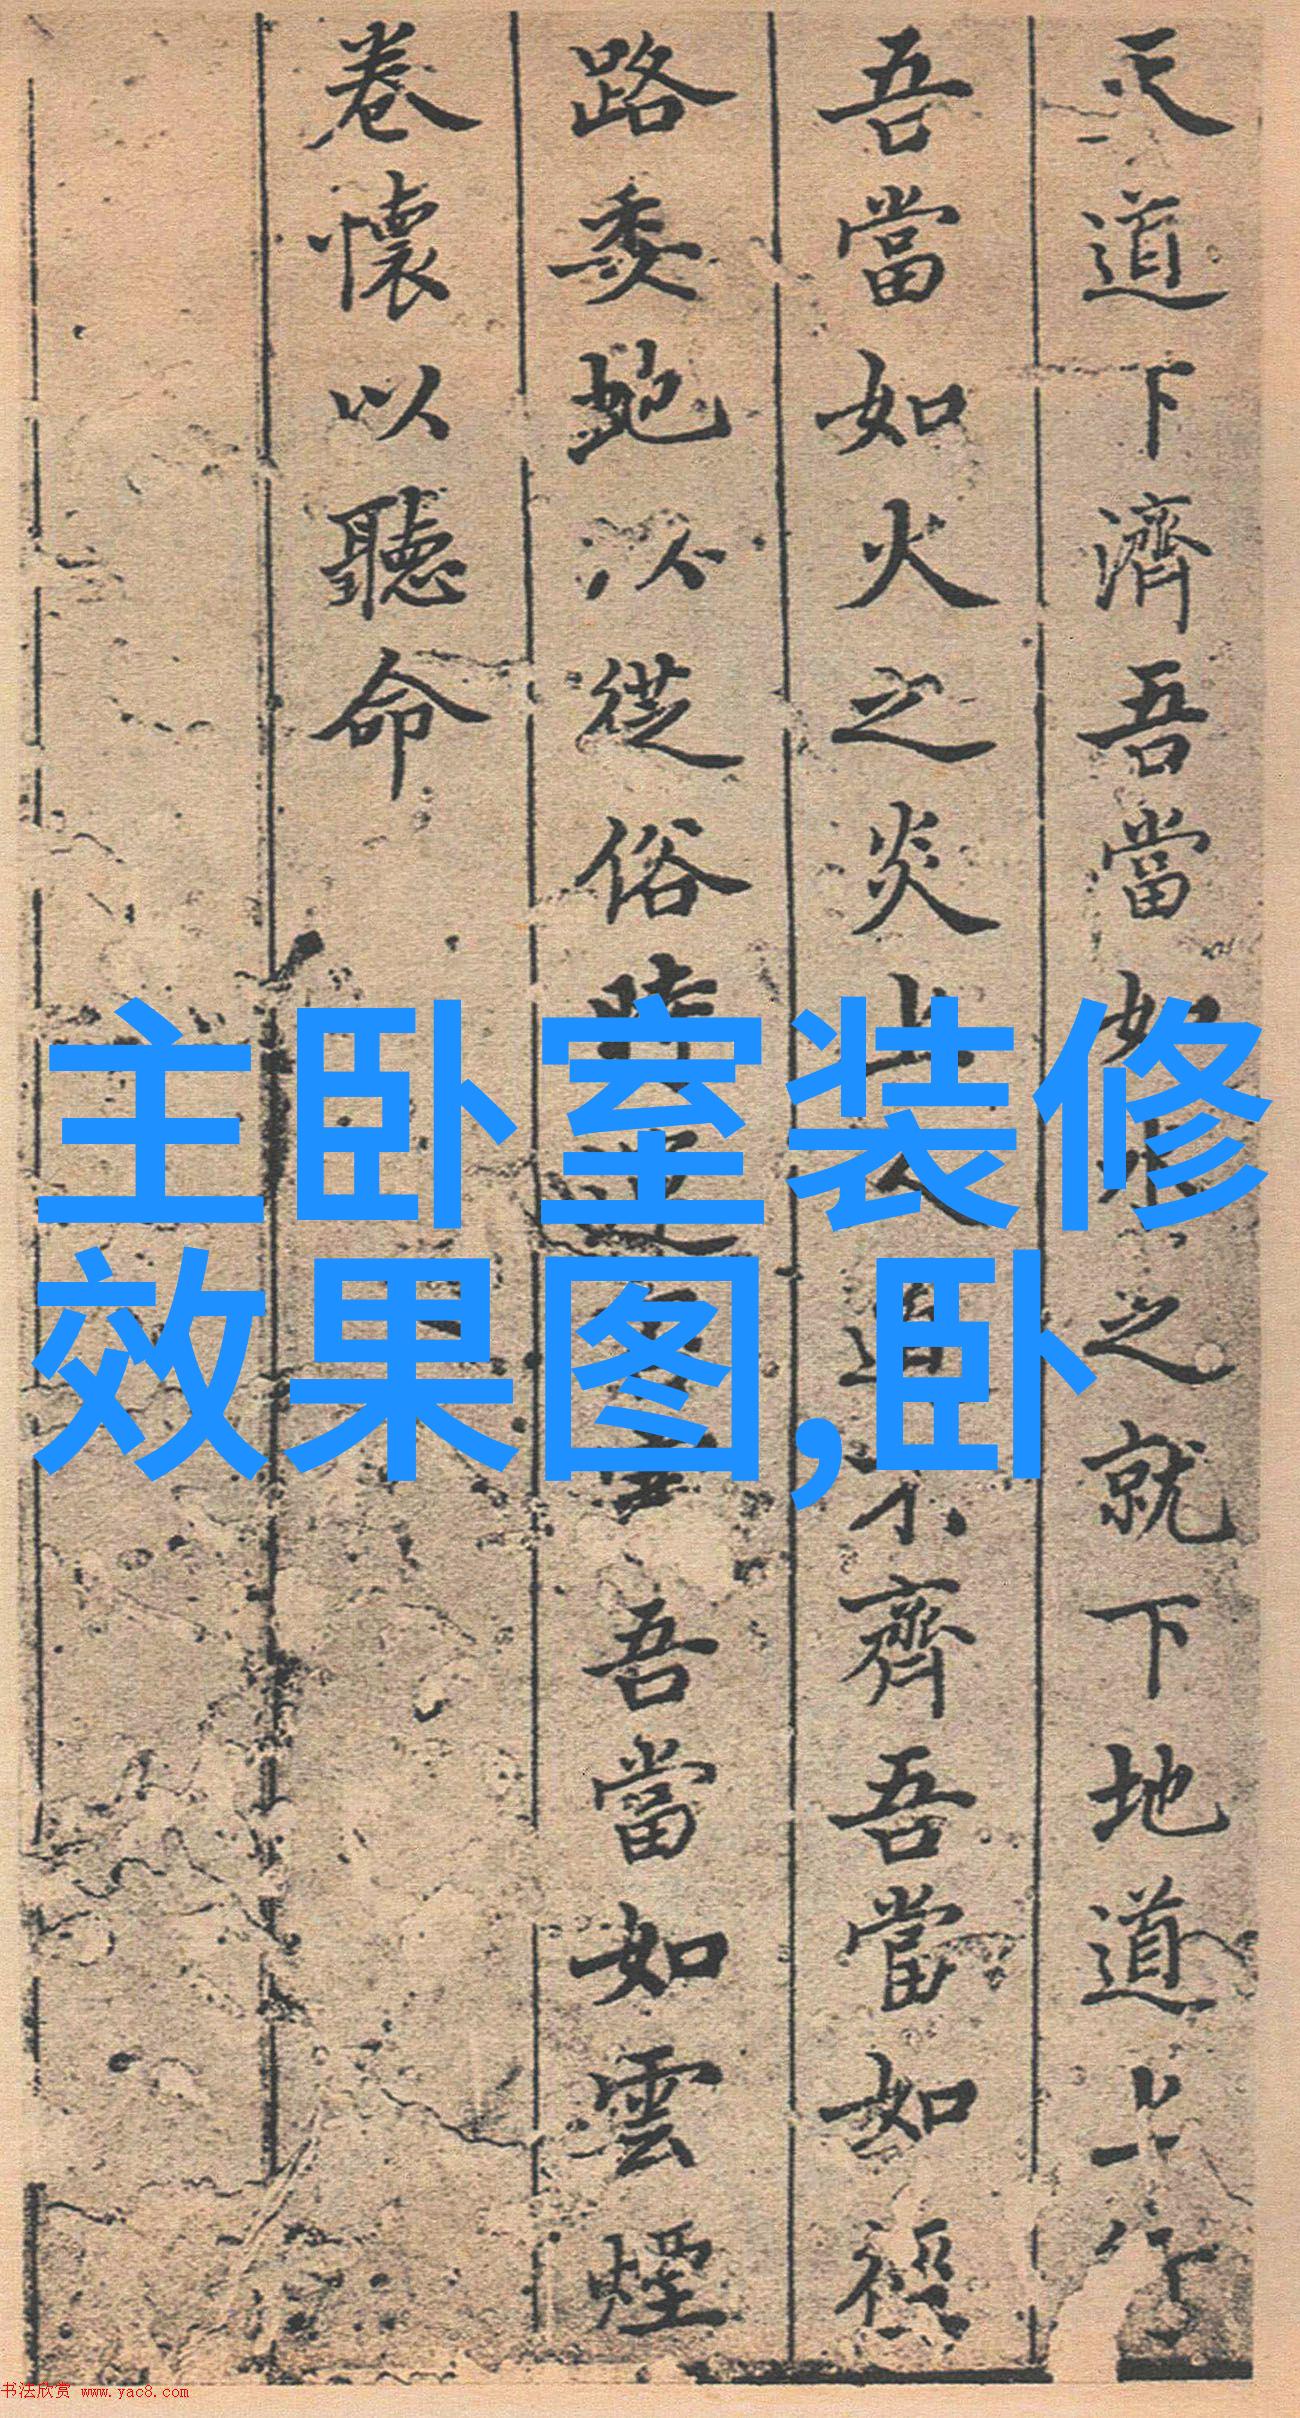 天道下濟吾當如水之就下地道上行
吾當如火之炎上人道不齊吾當如徑
路委虵以從俗時吾當如雲煙
卷懷以聽命
主卧室装修
效果图,卧
书法欣赏 www.yac8.com